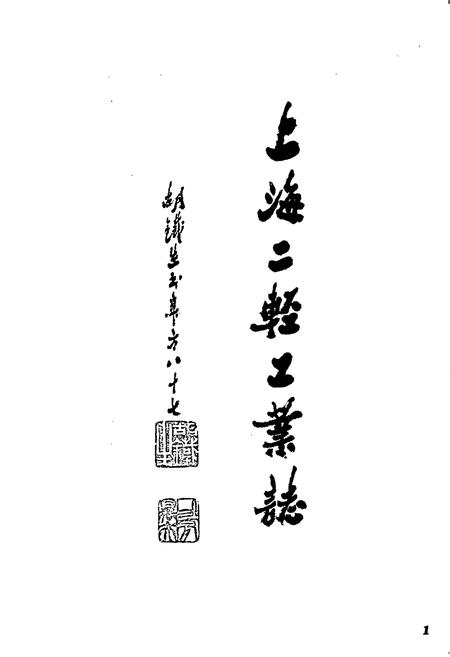 上海二輕工業誌
胡鐵生书年方八十七
1